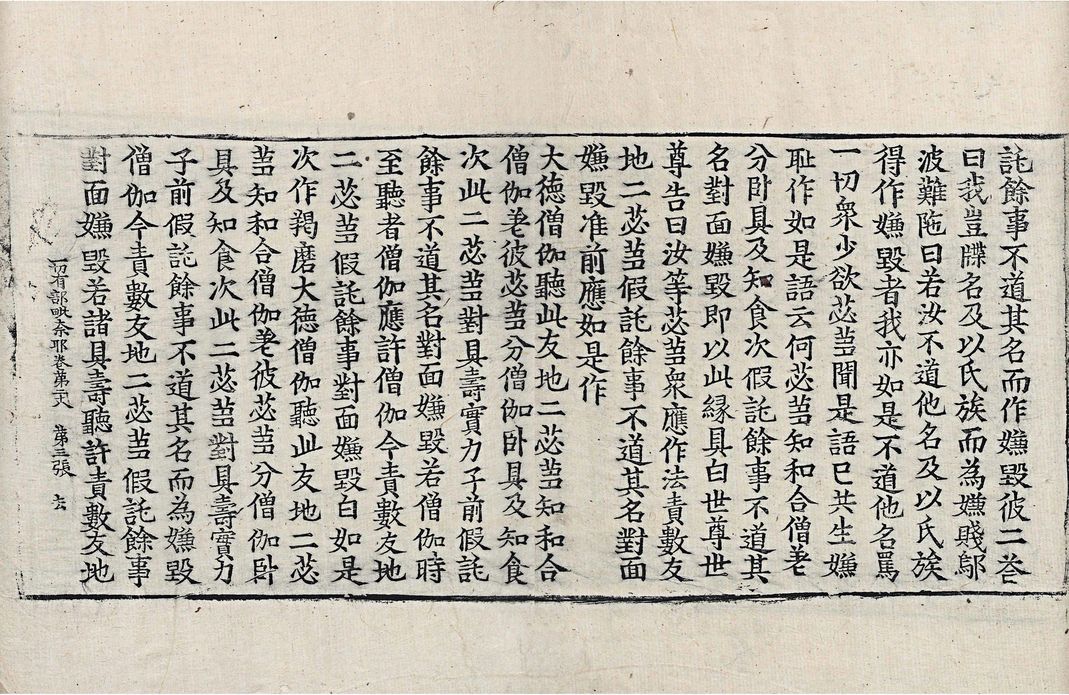 託餘事不道其名而作嫌毀彼二荅
曰我豈牒名及以氏族而為嫌賤鄔
波難陁曰若汝不道他名及以氏族
得作嫌毀者我亦如是不道他名罵
一切衆少欲苾芻聞是語已共生嫌
耻作如是語云何苾芻知和合僧差
分卧具及知食次假託餘事不道其
名對面嫌毀即以此緣具白世尊世
尊告曰汝等苾芻衆應作法責數友
地二苾芻假託餘事不道其名對面
嫌毀准前應如是作
大德僧伽聽此友地二苾芻知和合
僧伽差彼苾芻分僧伽卧具及知食
次此二苾芻對具壽實力子前假託
餘事不道其名對面嫌毀若僧伽時
至聽者僧伽應許僧伽今責數友地
二苾芻假託餘事對面嫌毀白如是
次作羯磨大德僧伽聽此友地二苾
芻知和合僧伽差彼苾芻分僧伽卧
具及知食次此二苾芻對具壽實力
子前假託餘事不道其名而為嫌毀
僧伽今責數友地二苾芻假託餘事
對面嫌毀若諸具壽聽許責數友地
一切有部毗奈耶卷第二十八 第三張 六